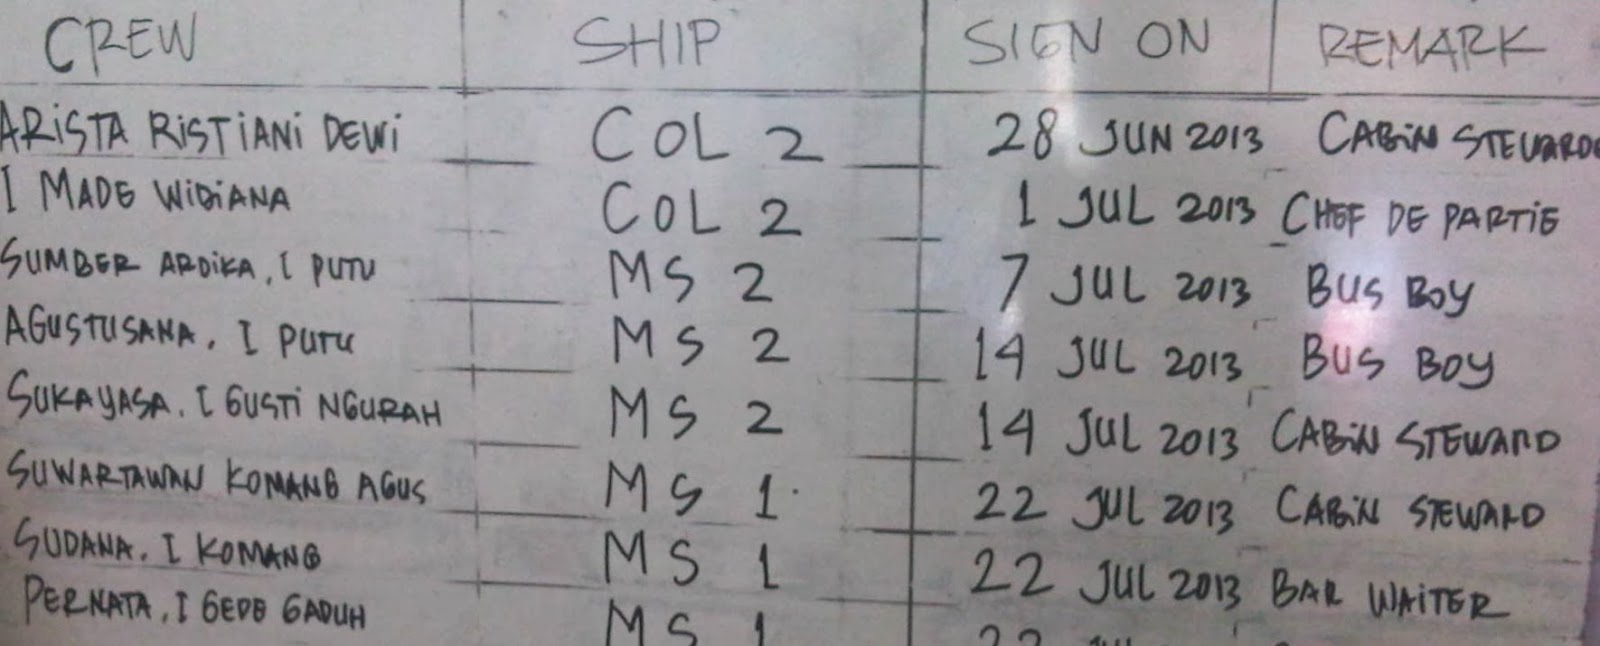 CREW SHIP SIGN ON REMARK
ARISTA RISTIANI DEWI COL 2 28 JUN 2013 CABIN STEWARD
I MADE WIDIANA COL 2 1 JUL 2013 CHEF DE PARTIE
SUMBER ARDIKA, I PUTU MS 2 7 JUL 2013 BUS BOY
AGUSTUSANA, I PUTU MS 2 14 JUL 2013 BUS BOY
SUKAYASA, I GUSTI NGURAH MS 2 14 JUL 2013 CABIN STEWARD
SUWARTAWAN KOMANG AGUS MS 1 22 JUL 2013 CABIN STEWARD
SUDANA, I KOMANG MS 1 22 JUL 2013 BAR WAITER
PERNATA, I GEDE GADUH MS 1